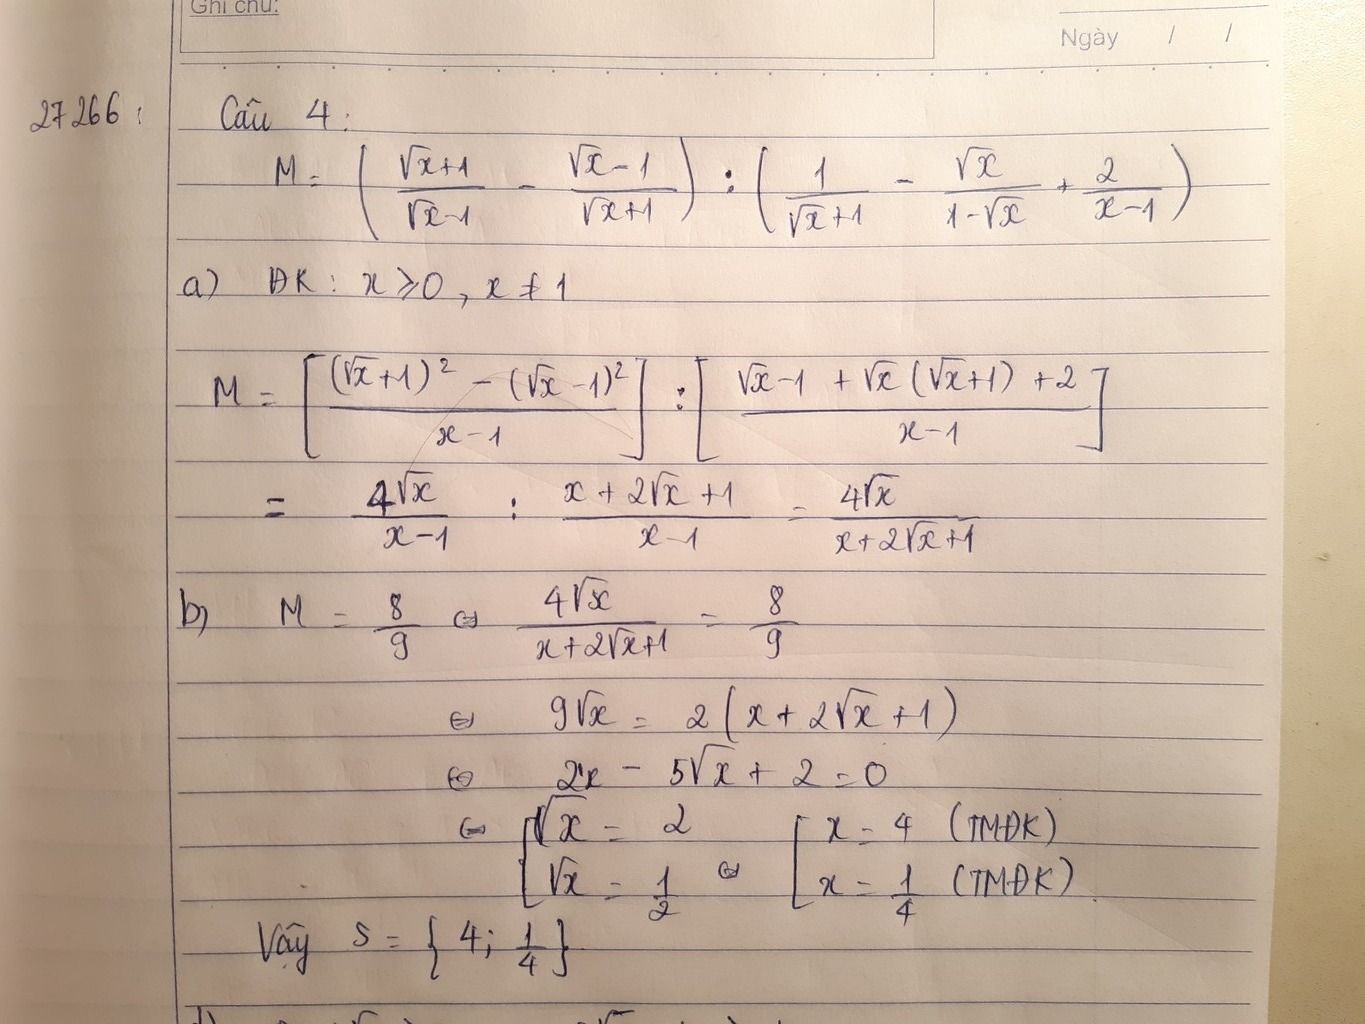 Ghi chú:
Ngày / /
27266: Câu 4:
M = ( (√x+1)/(√x-1) - (√x-1)/(√x+1) ) : ( 1/(√x+1) - √x/(1-√x) + 2/(x-1) )
a) ĐK: x ≥ 0, x ≠ 1
M = [ ((√x+1)² - (√x-1)²)/(x-1) ] : [ (√x-1 + √x(√x+1) + 2)/(x-1) ]
= 4√x/(x-1) : (x+2√x+1)/(x-1) = 4√x/(x+2√x+1)
b) M = 8/9 ⇔ 4√x/(x+2√x+1) = 8/9
⇔ 9√x = 2(x+2√x+1)
⇔ 2x - 5√x + 2 = 0
⇔ [ √x = 2 [ x = 4 (TMĐK)
√x = 1/2 ⇔ x = 1/4 (TMĐK)
Vậy S = { 4; 1/4 }